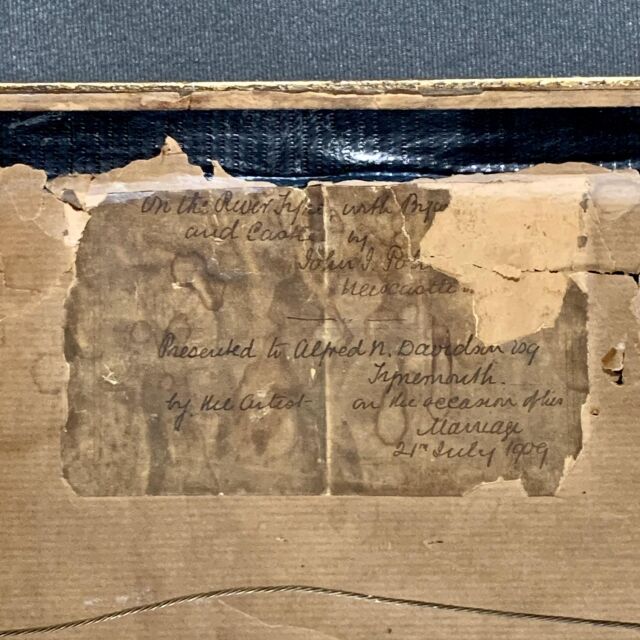 On the River Tyne with
and Castle by
John J.
Newcastle
Presented to Alfred N. Davidson Esq
Tynemouth.
by the Artist on the occasion of his
Marriage
21st July 1909